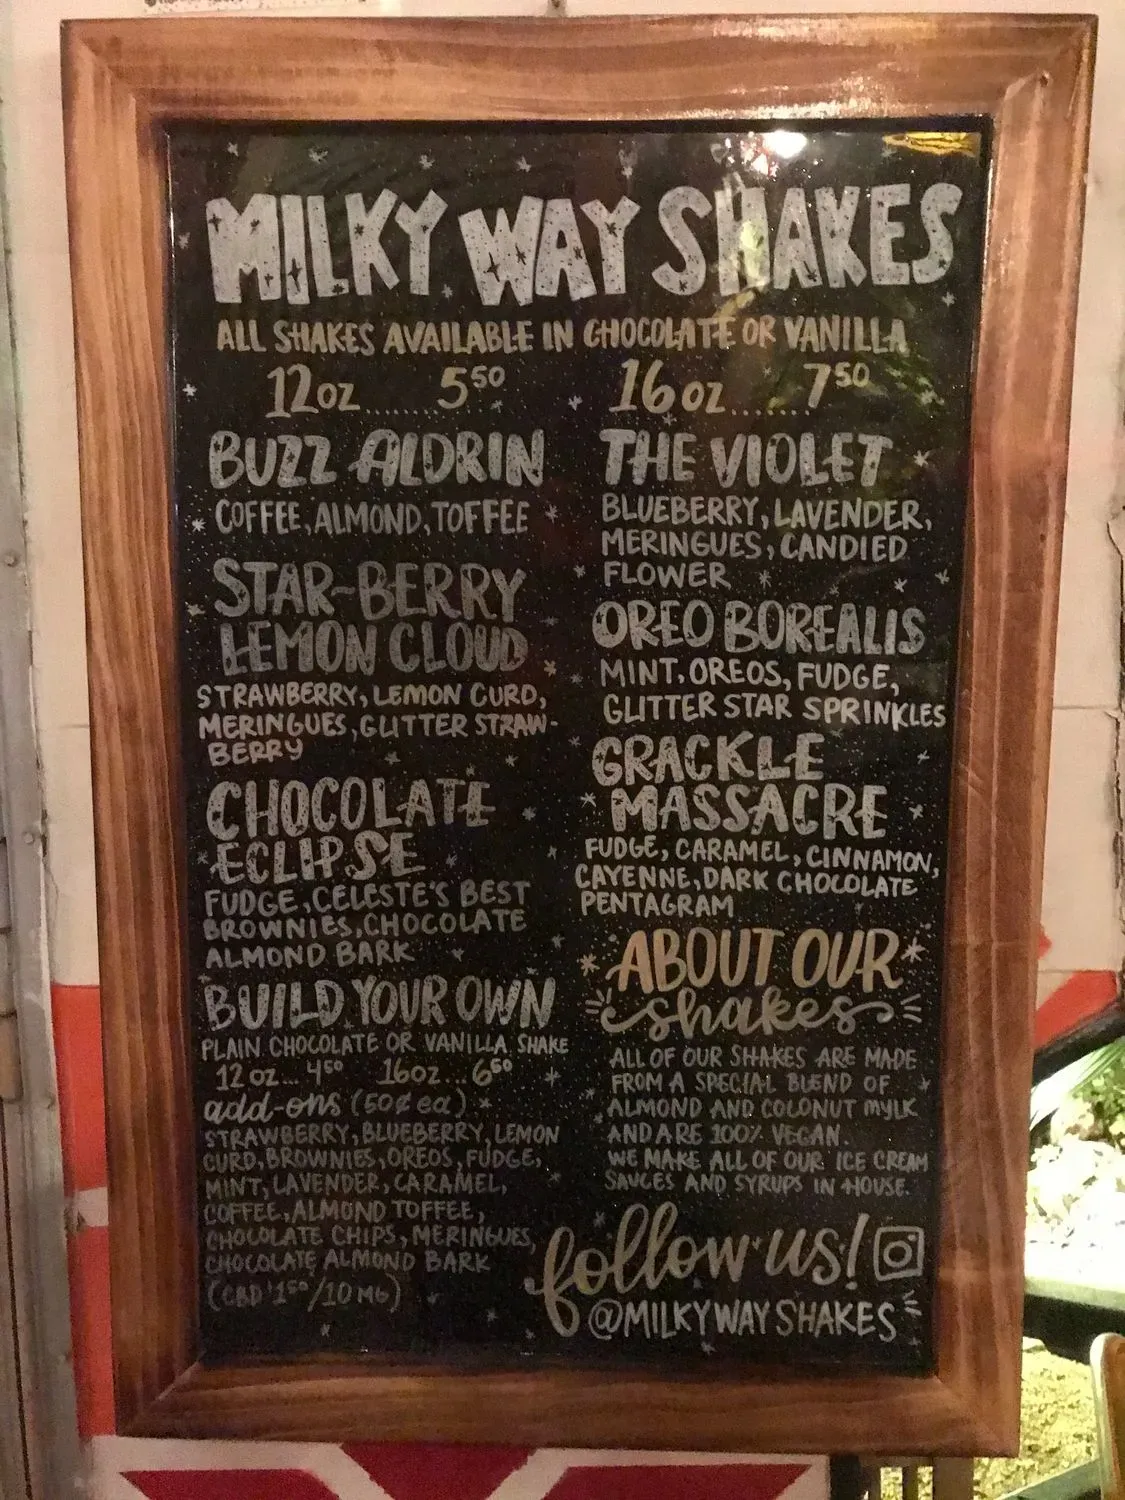 MILKY WAY SHAKES
ALL SHAKES AVAILABLE IN CHOCOLATE OR VANILLA
12oz.......5⁵⁰ 16oz.......7⁵⁰
BUZZ ALDRIN
COFFEE, ALMOND, TOFFEE
STAR-BERRY
LEMON CLOUD
STRAWBERRY, LEMON CURD,
MERINGUES, GLITTER STRAW-
BERRY
CHOCOLATE
ECLIPSE
FUDGE, CELESTE'S BEST
BROWNIES, CHOCOLATE
ALMOND BARK
BUILD YOUR OWN
PLAIN CHOCOLATE OR VANILLA SHAKE
12oz... 4⁵⁰ 16oz...6⁵⁰
add-ons (50¢ ea)
STRAWBERRY, BLUEBERRY, LEMON
CURD, BROWNIES, OREOS, FUDGE,
MINT, LAVENDER, CARAMEL,
COFFEE, ALMOND TOFFEE,
CHOCOLATE CHIPS, MERINGUES,
CHOCOLATE ALMOND BARK
(CBD $1⁵⁰/10MG)
THE VIOLET
BLUEBERRY, LAVENDER,
MERINGUES, CANDIED
FLOWER
OREO BOREALIS
MINT, OREOS, FUDGE,
GLITTER STAR SPRINKLES
GRACKLE
MASSACRE
FUDGE, CARAMEL, CINNAMON,
CAYENNE, DARK CHOCOLATE
PENTAGRAM
ABOUT OUR
shakes
ALL OF OUR SHAKES ARE MADE
FROM A SPECIAL BLEND OF
ALMOND AND COCONUT MYLK
AND ARE 100% VEGAN.
WE MAKE ALL OF OUR ICE CREAM
SAUCES AND SYRUPS IN HOUSE.
follow us!
@MILKYWAYSHAKES